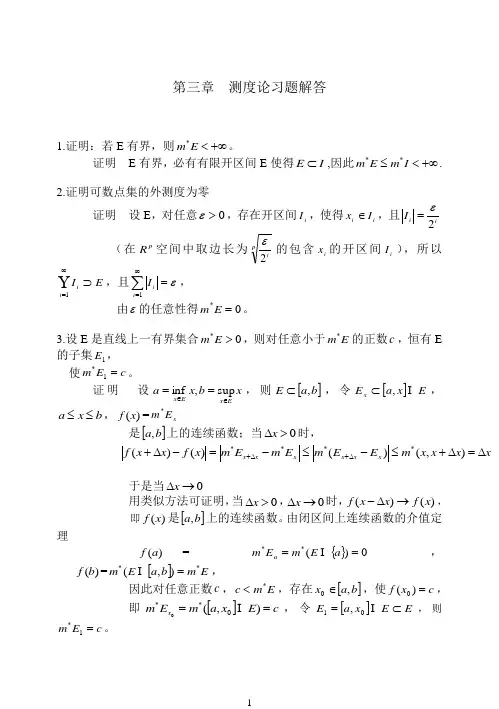 第三章 测度论习题解答
1.证明：若 E 有界，则 m*E < +∞。
证明 E 有界，必有有限开区间 E 使得 E ⊂ I ,因此 m*E ≤ m*I < +∞.
2.证明可数点集的外测度为零
证明 设 E，对任意 ε > 0，存在开区间 I_i，使得 x_i ∈ I_i，且 |I_i| = ε/2^i
（在 R^p 空间中取边长为 \sqrt[p]{ε/2^i} 的包含 x_i 的开区间 I_i），所以
Y_{i=1}^{∞} I_i ⊃ E，且 ∑_{i=1}^{∞} |I_i| = ε，
由 ε 的任意性得 m*E = 0。
3.设 E 是直线上一有界集合 m*E > 0，则对任意小于 m*E 的正数 c，恒有 E
的子集 E_1，
使 m*E_1 = c。
证明 设 a = inf_{x∈E} x, b = sup_{x∈E} x，则 E ⊂ [a,b]，令 E_x ⊂ [a,x] I E，
a ≤ x ≤ b，f(x) = m*E_x
是 [a,b] 上的连续函数；当 Δx > 0 时，
f(x+Δx) − f(x) = m*E_{x+Δx} − m*E_x ≤ m*(E_{x+Δx} − E_x) ≤ m*(x, x+Δx) = Δx
于是当 Δx → 0
用类似方法可证明,当 Δx > 0，Δx → 0 时，f(x − Δx) → f(x)，
即 f(x) 是 [a,b] 上的连续函数。由闭区间上连续函数的介值定
理
f(a) = m*E_a = m*(E I {a}) = 0 ，
f(b) = m*(E I [a,b]) = m*E，
因此对任意正数 c，c < m*E，存在 x_0 ∈ [a,b]，使 f(x_0) = c，
即 m*E_{x_0} = m*([a,x_0] I E) = c，令 E_1 = [a,x_0] I E ⊂ E，则
m*E_1 = c。
1